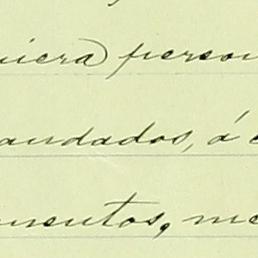 uiera person
andados, á e
mentos, me